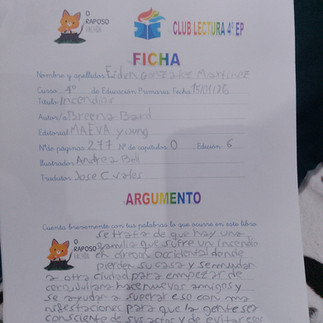 O
RAPOSO
CLUB LECTURA 4º EP
FICHA
Nombre y apellidos Eiden Gonzalez Martinez
Curso: 4º de Educación Primaria Fecha
Título: Incendios
Autor/a Breena Bard
Editorial MAEVA young
Nº de páginas 277 Nº de capítulos 0 Edición 6
Ilustrador: Andrea
Traductor José C vales
ARGUMENTO
Cuenta brevemente con tus palabras lo que ocurre en este libro
O
RAPOSO
se trata de que hay una
familia que sufre un incendio
en oregon occidental donde
pierden su casa y se mudan
a otra ciudad para empezar de
cero, alli hace nuevos amigos y
se ayudan a superar eso con ma
nifestaciones para que la gente sea
consciente de sus actos y de evitar esos